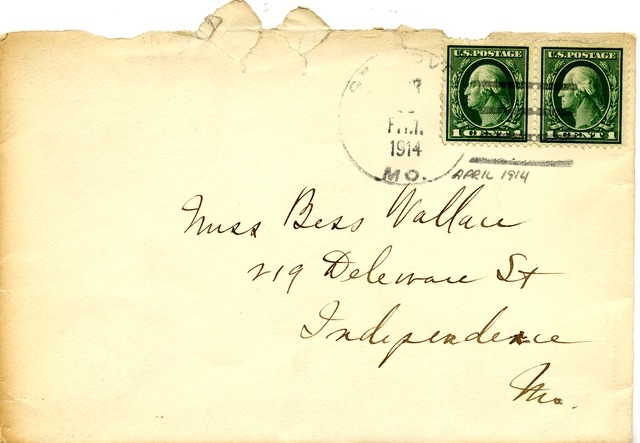 U.S. POSTAGE U.S. POSTAGE
1 CENT 1 1 CENT 1
P.M.
1914
MO.
APRIL 1914
Miss Bess Wallace
219 Deleware St
Independence
Mo.